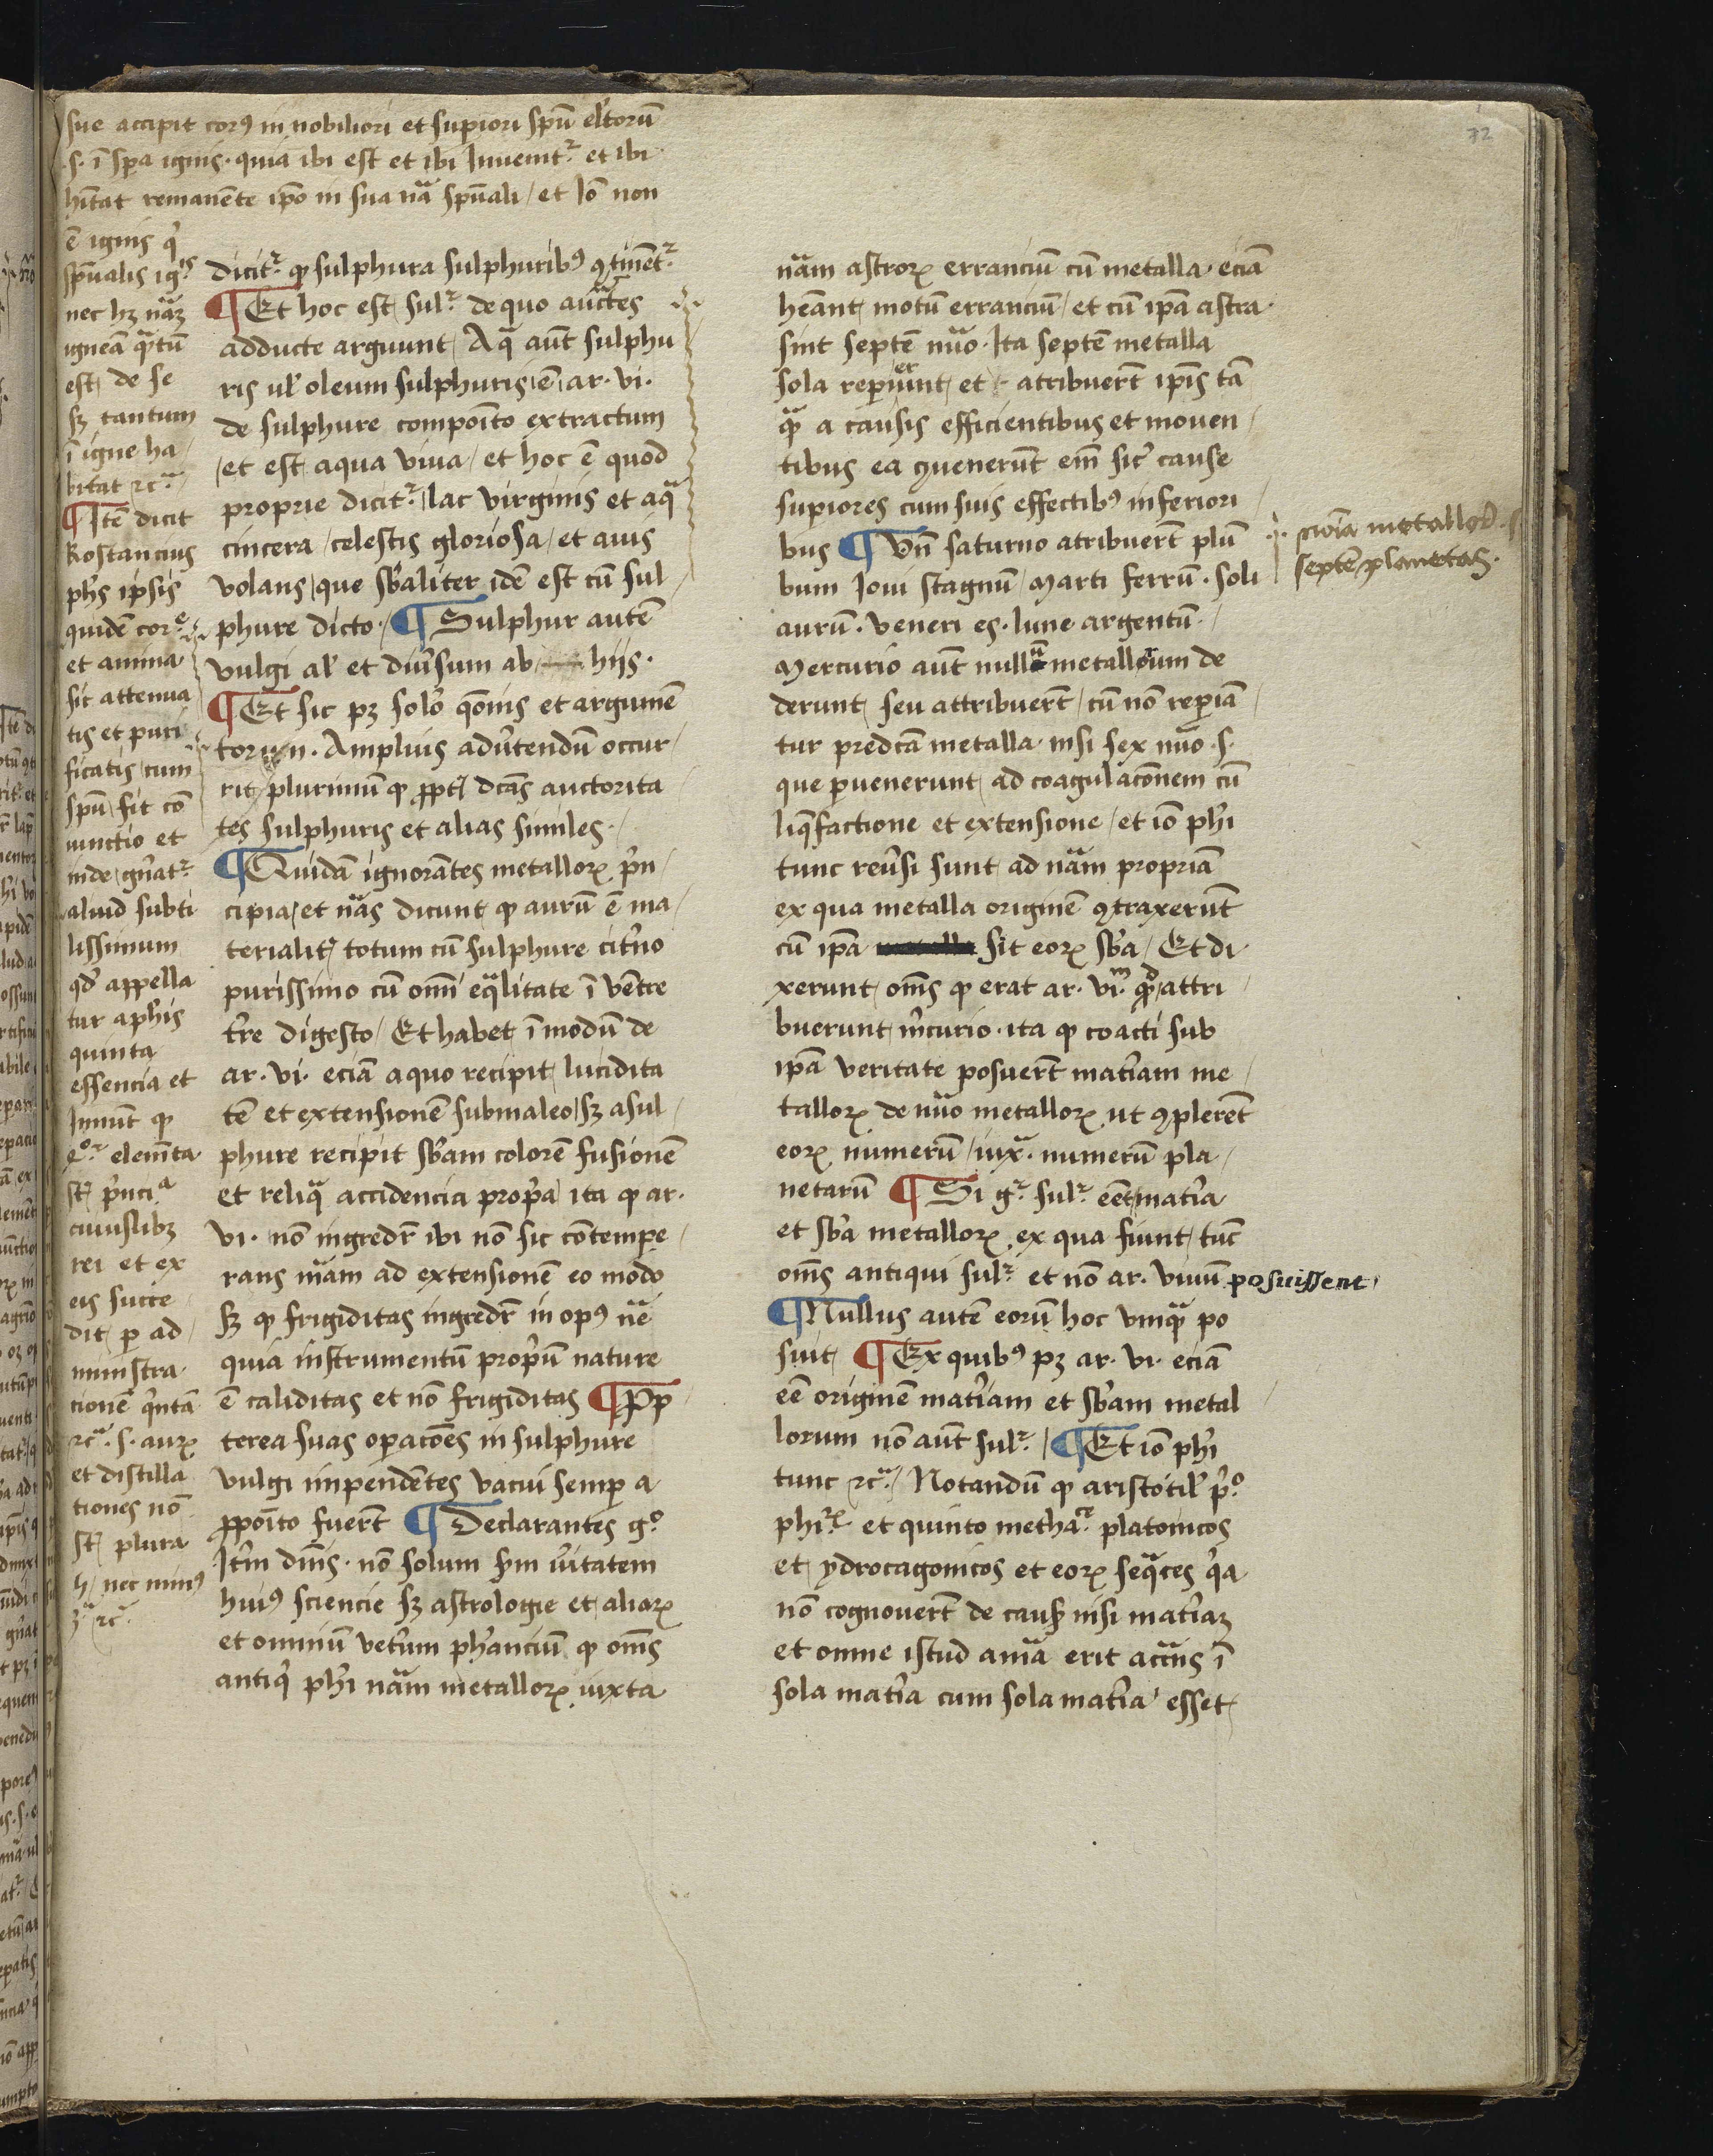 sue accipit corꝰ in nobiliori et supiori spū eltorū
.s. ī spa ignis. quia ibi est et ibi Inuenitr et ibi
hitat remanēte ipo in sua nā spūali / et Io non
ē ignis q
spūalis igis
nec hz nāz
igneā qtū
est de se
sz tantum
ī igne ha
bitat ⁊c
¶ Itē dicit
Rostancius
phs ipsis
quidē core
et anima
sic attenua
tis et puri
ficatis / cum
spū fit cō
iunctio et
inde gnatr
aliud subti
lissimum
qd appella
tur a phis
quinta
essencia et
Inniūt qꝫ
4or elemēta
st pncia
cuiuslibꝫ
rei et ex
eis succe
dit p ad
ministra
cionē qntā
⁊c. s. aurꝝ
et distilla
tiones nō
st plura
4 / nec minꝰ
3a ⁊c
dicitr qꝫ sulphura sulphuribꝰ ꝯtinētr
¶ Et hoc est sulr de quo auctes
adducte arguunt / Aq aut sulphu
ris ul oleum sulphuris ē ar. vi.
de sulphure compoito extractum
et est aqua viua / et hoc ē quod
proprie dicitr lac virginis et aq
cincera / celestis gloriosa / et auis
volans / que sbaliter idē est cū sul
phure dicto. ¶ Sulphur autē
vulgi al et diuersum ab hijs.
¶ Et sic pz solo qonis et argumē
torum. Amplius aduertendū occur
rit plurimū qꝫ ꝓpt dcas auctorita
tes sulphuris et alias similes.
¶ Quidā ignorātes metallorꝝ prin
cipia / et nās dicunt qꝫ aurū ē ma
terialit totum cū sulphure citrino
purissimo cū omni eqlitate ī ventre
tre digesto / Et habet ī modū de
ar. vi. eciā a quo recipit lucidita
tē et extensionē sub maleo / sz a sul
phure recipit sbam colorē fusionē
et reliqa accidencia propa ita qꝫ ar.
vi. nō ingredr ibi nō sic cōtempe
rans nām ad extensionē eo modo
sz qꝫ frigiditas ingredr in opꝰ nē
quia instrumentū propū nature
ē caliditas et nō frigiditas ¶ Prop
terea suas opacōes in sulphure
vulgi impendētes vacui semp a
ꝓpoito fuert ¶ Declarantes go
Itm dnis. nō solum scdm vitatem
huiꝰ sciencie sz astrologie et aliorꝝ
et omniū vetum phanciū qꝫ oms
antiqi phi nām metallorꝝ iuxta
nām astrorꝝ erranciū cū metalla eciā
heant motū erranciū / et cū ipa astra
sint septē nūo. Ita septē metalla
sola reperiunt / et atribuert ipis tā
qꝫ a causis efficientibus et mouen
tibus ea ꝯuenerunt em sicut cause
supiores cum suis effectibꝰ inferiori
bus ¶ Un saturno atribuert plū
bum Ioui stagnū / Marti ferrū. soli
aurū. Veneri es. lune argentū.
Mercurio aut nulla metallorum de
derunt seu attribuert / cū nō repiā
tur predcā metalla nisi sex nūo .s.
que puenerunt ad coagulacōnem cū
liqfactione et extensione / et io phi
tunc reuersi sunt ad nām propriā
ex qua metalla originē ꝯtraxerūt
cū ipa sit eorꝝ sba / Et di
xerunt oms qꝫ erat ar. vim. qd attri
buerunt mercurio. ita qꝫ coacti sub
ipa veritate posuert matiam me
tallorꝝ de nūo metallorꝝ ut ꝯplerēt
eorꝝ numerū / iuxa. numerū pla
netarū ¶ Si gr sulr eēt matia
et sba metallorꝝ ex qua fiunt / tūc
oms antiqui sulr et nō ar. viuū posuissent
¶ Nullus autē eorū hoc unqꝫ po
suit ¶ Ex quibꝰ pz ar. vi. eciā
eē originē matiam et sbam metal
lorum nō aut sulr / ¶ Et io phi
tunc ⁊c / Notandū qꝫ aristotil po
phir et quinto metha platonicos
et ydrocagonicos et eorꝝ seqces qa
nō cognouert de caus nisi matiaz
et omne istud ania erit accns ī
sola matia cum sola matia esset
metallorꝝ
septē planetas.
72